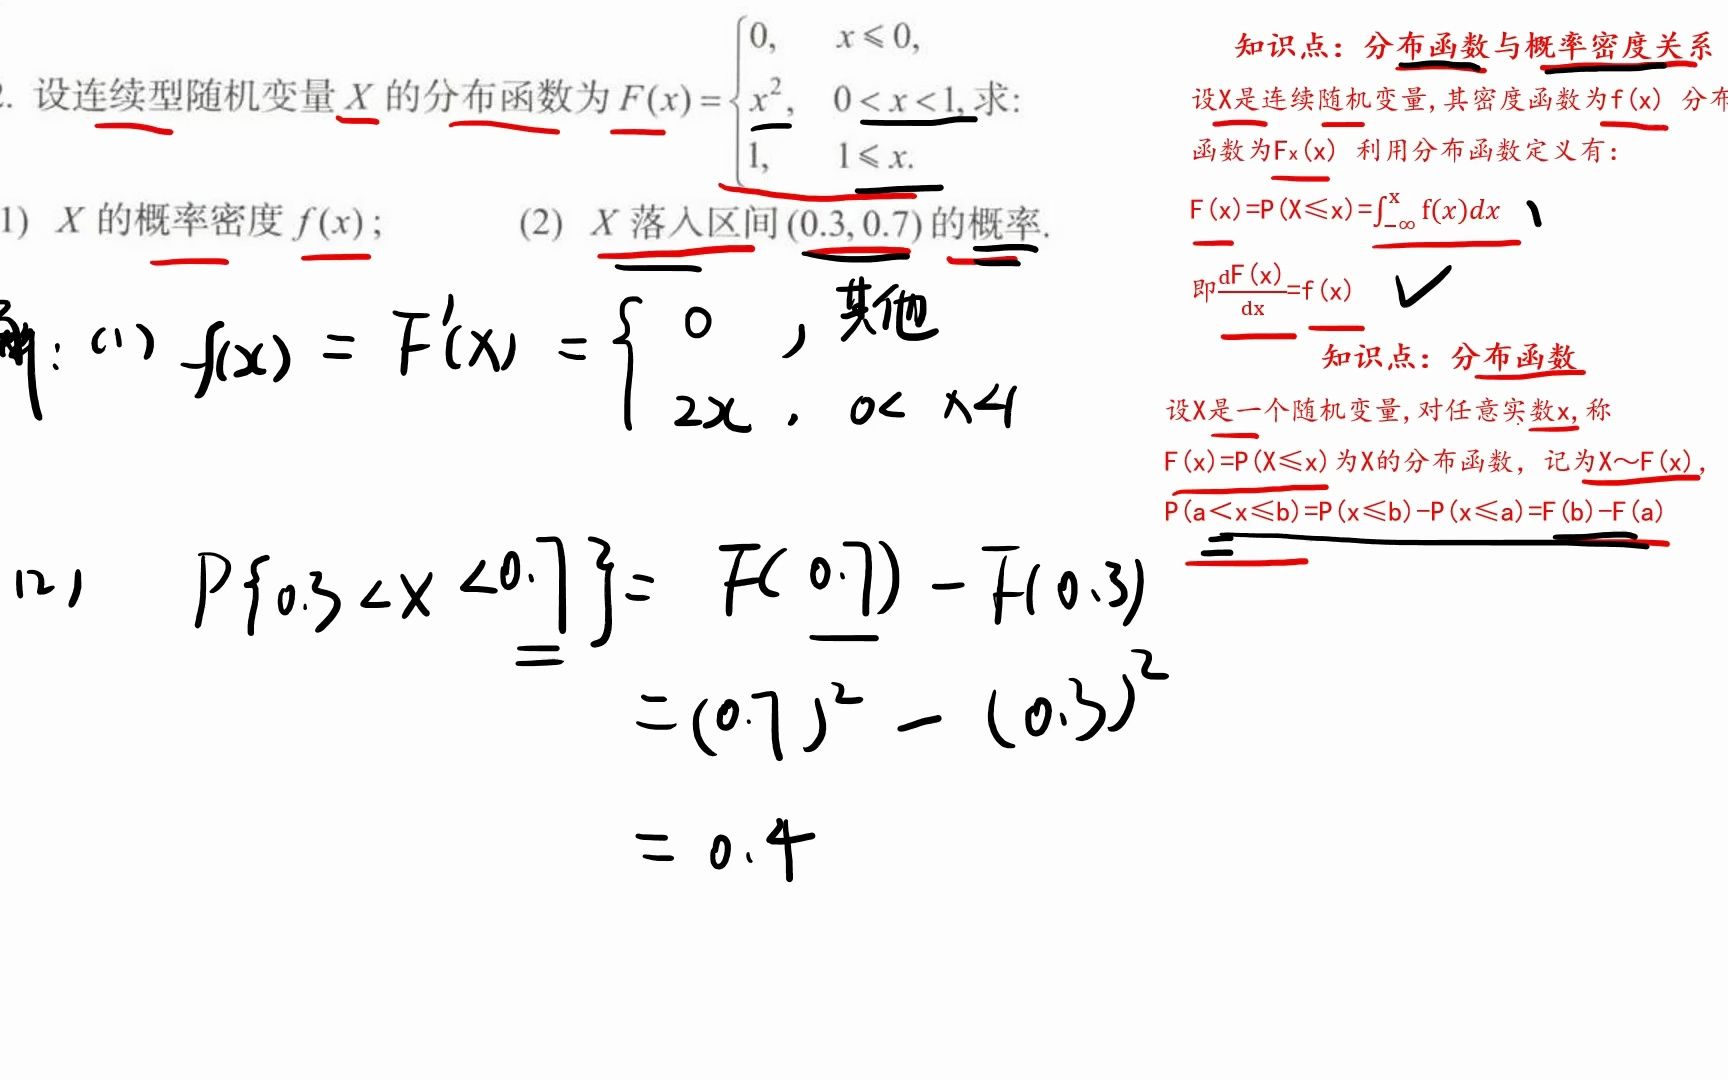 2. 设连续型随机变量 X 的分布函数为 F(x) = { 0, x ⩽ 0, x², 0 < x < 1, 1, 1 ⩽ x. 求:
1) X 的概率密度 f(x); (2) X 落入区间 (0.3, 0.7) 的概率.
解: (1) f(x) = F'(x) = { 0 , 其他
2x , 0 < x < 1
(2) P{0.3 < X < 0.7} = F(0.7) − F(0.3)
= (0.7)² − (0.3)²
= 0.4
知识点: 分布函数与概率密度关系
设X是连续随机变量, 其密度函数为f(x) 分布
函数为Fₓ(x) 利用分布函数定义有:
F(x)=P(X≤x)=∫_{−∞}^{x} f(x)dx
即 dF(x)/dx = f(x) ✓
知识点: 分布函数
设X是一个随机变量, 对任意实数x, 称
F(x)=P(X≤x)为X的分布函数, 记为X～F(x),
P(a＜x≤b)=P(x≤b)-P(x≤a)=F(b)-F(a)